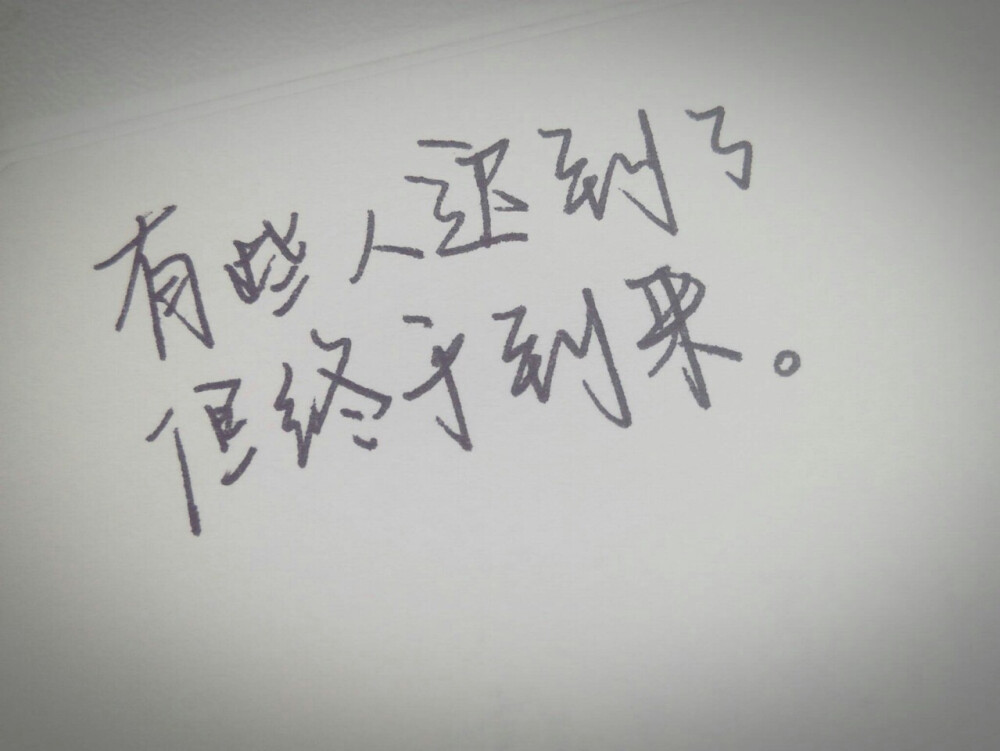 有些人迟到了
但终于到来。